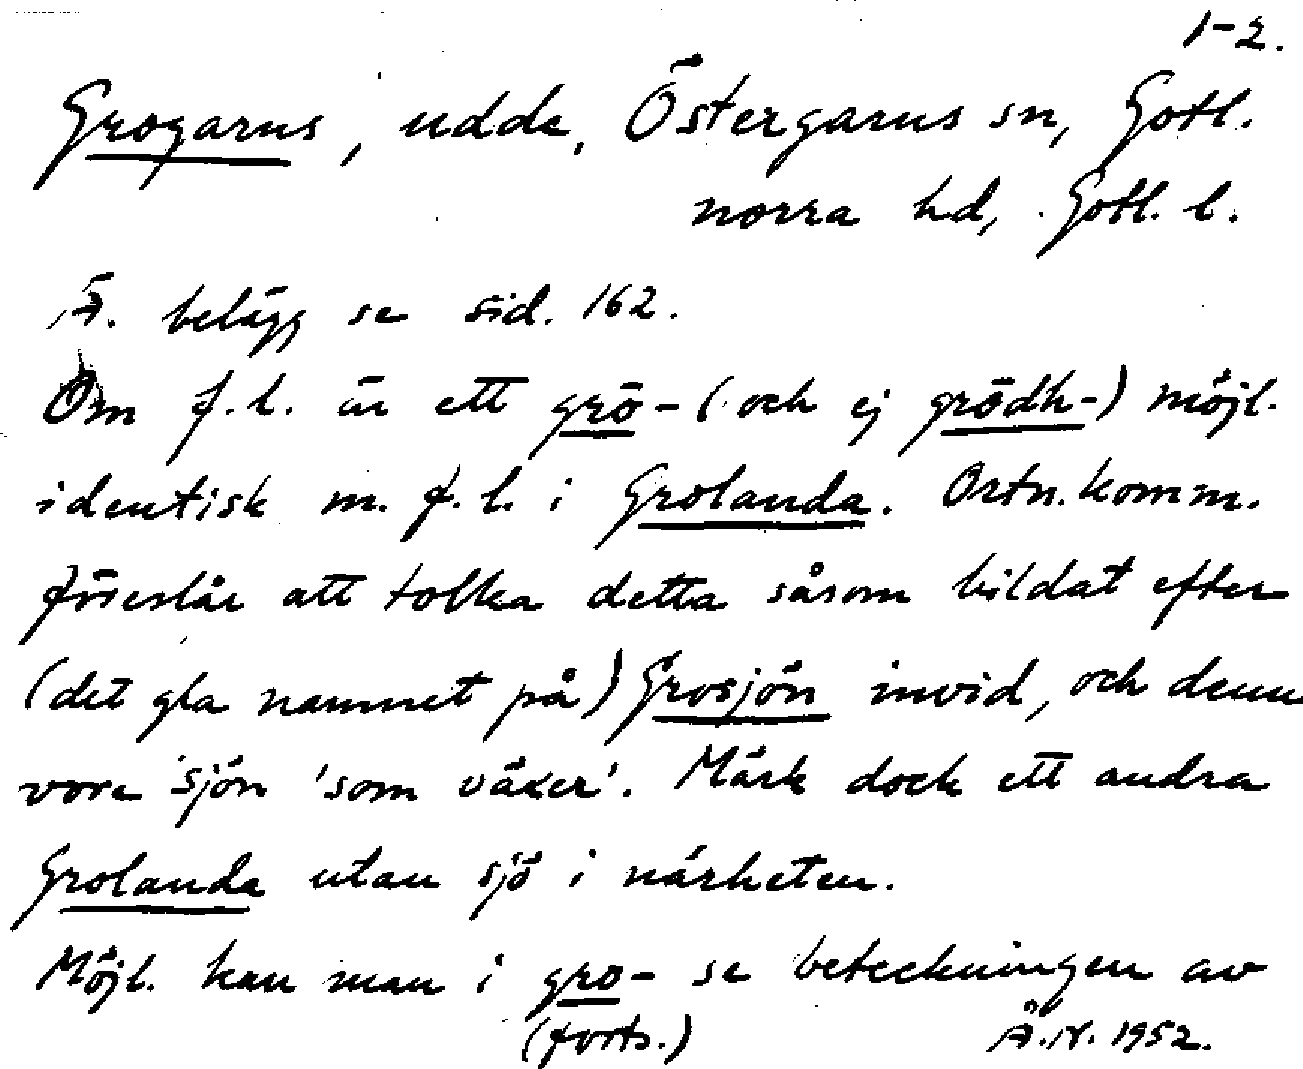 1-2.
Grogarns, udde, Östergarns sn, Gotl.
norra hd, Gotl. l.
Ä. belägg se sid. 162.
Om f.l. är ett grō- (och ej grōdh-) möjl.
identisk m. f.l. i Grolanda. Ortn.komm.
föreslår att tolka detta såsom bildat efter
(det gla namnet på) Grosjön invid, och denna
vore sjön 'som växer'. Märk dock ett andra
Grolanda utan sjö i närheten.
Möjl. kan man i gro- se beteckningen av
(forts.) Å.N. 1952.